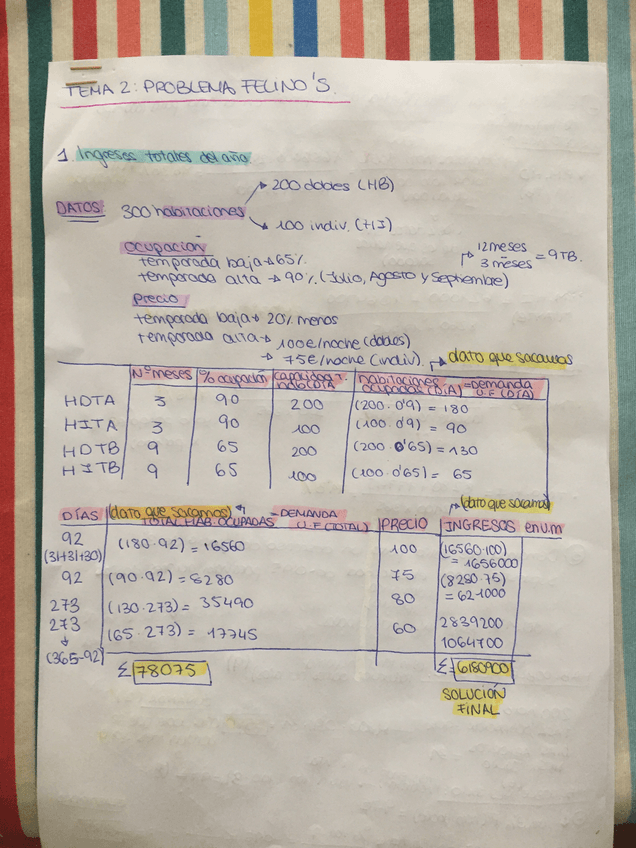 TEMA 2: PROBLEMA FELINO'S.
1. Ingresos totales del año
→ 200 dobles (HB)
DATOS 300 habitaciones
→ 100 indiv. (HI)
Ocupación
temporada baja → 65%
12 meses
3 meses = 9 TB.
temporada alta → 90% (Julio, Agosto y Septiembre)
Precio
temporada baja → 20% menos
temporada alta → 100€/noche (dobles)
→ 75€/noche (indiv.)
→ dato que sacamos
Nº meses % ocupación capacidad T. habitaciones =Demanda
ocupadas (DÍA) U.F (DÍA)
HDTA 3 90 200 (200·0'9) = 180
HITA 3 90 100 (100·0'9) = 90
HDTB 9 65 200 (200·0'65) = 130
HITB 9 65 100 (100·0'65) = 65
(dato que sacamos) (dato que sacamos)
DÍAS TOTAL HAB. OCUPADAS =DEMANDA U.F (TOTAL) PRECIO INGRESOS en u.m
92 (180·92) = 16560 100 (16560·100)
(31+31+30) = 1656000
92 (90·92) = 8280 75 (8280·75)
= 621000
273 (130·273) = 35490 80 2839200
273 (65·273) = 17745 60 1064700
(365-92)
Σ 78075 Σ= 6180900
SOLUCIÓN
FINAL